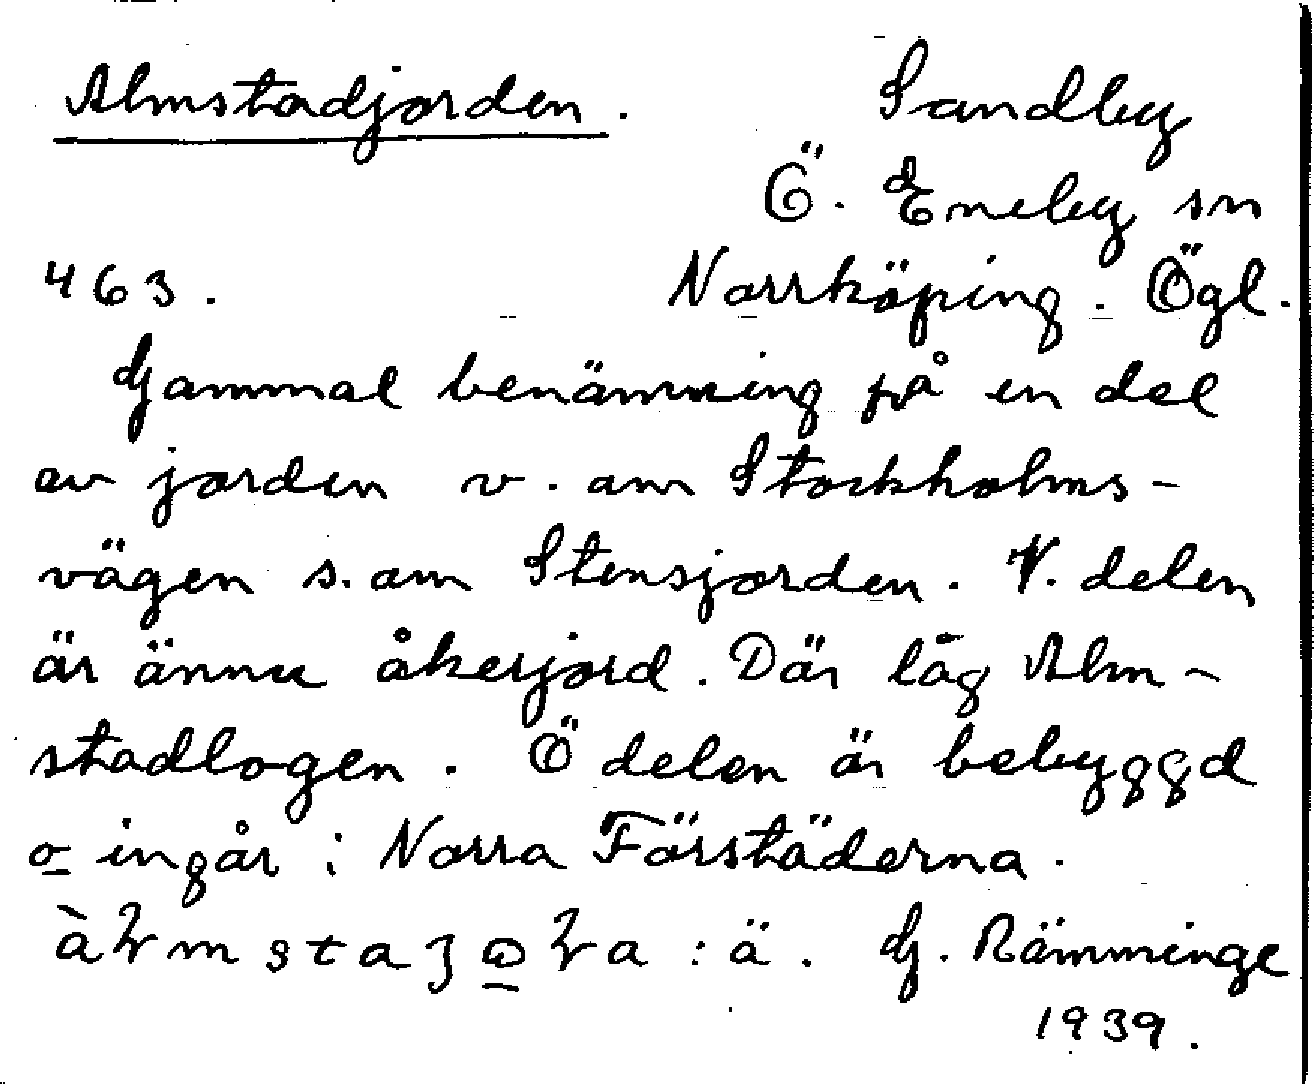 Almstadjorden. Sandby
Ö. Eneby sn
463. Norrköping. Ögl.
Gammal benämning på en del
av jorden v. om Stockholms-
vägen s. om Stensjorden. V. delen
är ännu åkerjord. Där låg Alm-
stadlogen. Ö delen är bebyggd
o ingår i Norra Förstäderna.
G. Rämminge
1939.